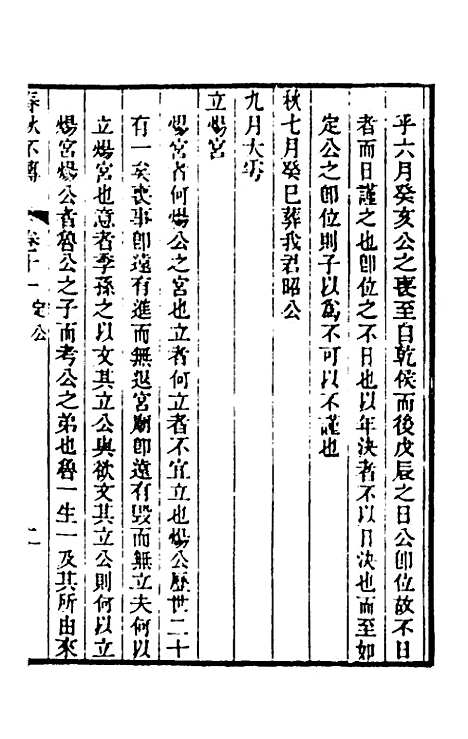 乎六月癸亥公之喪至自乾侯而後戊辰之日公卽位故不日
者而日謹之也卽位之不日也以年決者不以日決也而至如
定公之卽位則子以爲不可以不謹也
秋七月癸巳葬我君昭公
九月大雩
立煬宮
煬宮者何煬公之宮也立者何立者不宜立也煬公歷世二十
有一矣喪事卽遠有進而無退宮廟卽遠有毀而無立夫何以
立煬宮也意者季孫之以文其立公與欲文其立公則何以立
煬宮煬公者魯公之子而考公之弟也魯一生一及其所由來
春秋不傳 卷十一 定公 二